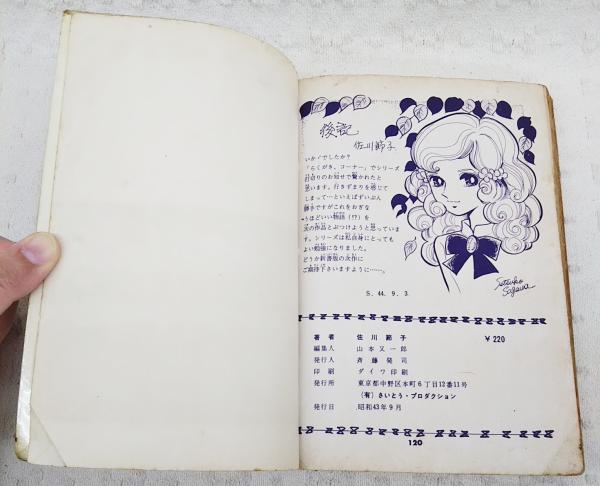 後記
佐川節子
いかゞでしたか?
「らくがき、コーナー」でシリーズ
打切りのお知せで驚かれたと
思います。行きずまりを感じて
しまって…といえばずいぶん
勝手ですがこれをおぎな
うほどいい物語(!?)を
次の作品とぶつけようと思っていま
す。シリーズは私自身にとっても
よい勉強になりました。
どうか新書版の次作に
ご期待下さいますように……。
S. 44. 9. 3.
Setsuko
Sagawa
著者 佐川節子 ¥220
編集人 山本又一郎
発行人 斉藤発司
印刷 ダイワ印刷
発行所 東京都中野区本町6丁目12番11号
(有)さいとう・プロダクション
発行日 昭和43年9月
120